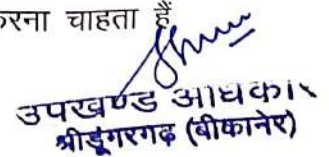 करना चाहता हैं
उपखण्ड अधिकारी
श्रीडूंगरगढ़ (बीकानेर)